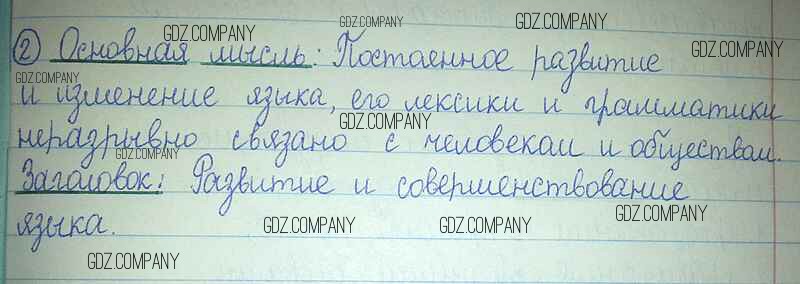 GDZ.COMPANY GDZ.COMPANY GDZ.COMPANY
② Основная мысль: Постоенное развитие GDZ.COMPANY
GDZ.COMPANY
и изменение языка, его лексики и грамматики
GDZ.COMPANY
неразрывно связано с человеком и обществом.
GDZ.COMPANY
Заголовок: Развитие и совершенствование
GDZ.COMPANY
языка. GDZ.COMPANY GDZ.COMPANY
GDZ.COMPANY